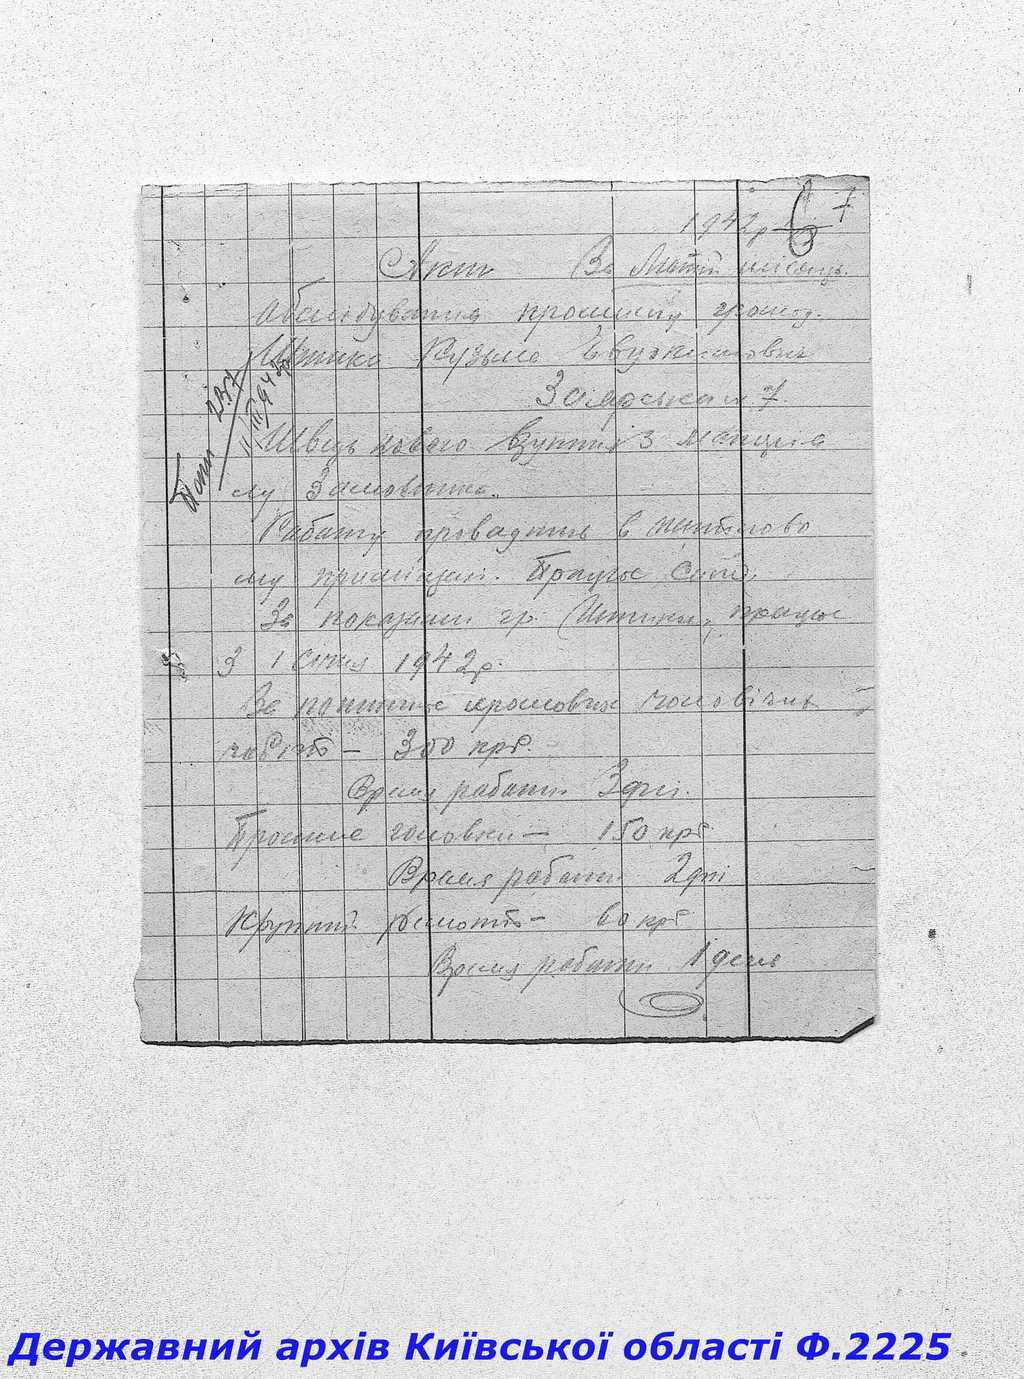 7
1942р
Акт За Лютий місяць.
обслідування промислу громад.
Кузьма
Заярська 7.
Швець нового взуття з матеріа
лу Замовника.
Работу провадить в житлово
му приміщені. Працює сам.
За показами гр. працює
З 1 січня 1942р.
За хромових чоловічих
чобіт — 300 крб.
Время работи 3 дні.
головки — 150 крб
Время работи 2 дні
Крупний ремонт — 60 крб
Время работи 1 день
237
11/III 942р
Державний архів Київської області Ф.2225